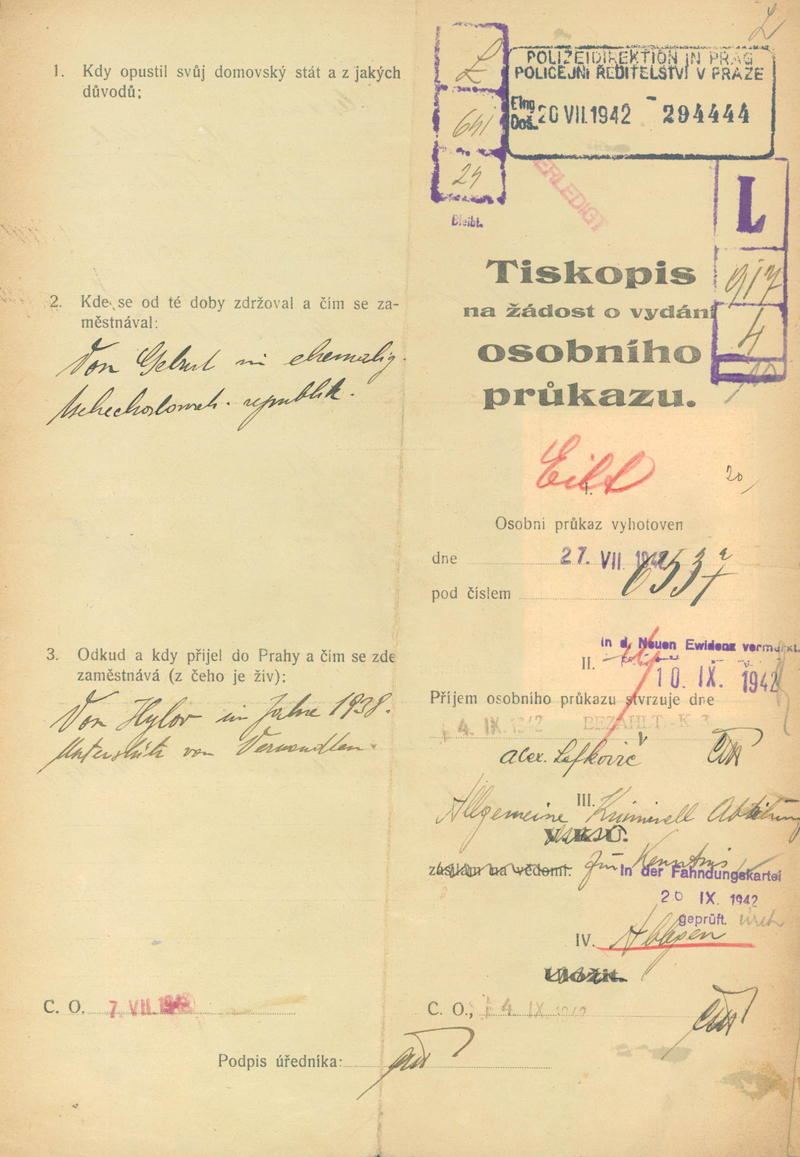 1. Kdy opustil svůj domovský stát a z jakých
důvodů:
2. Kde se od té doby zdržoval a čím se za-
městnával:
Von Geburt in ehemalig.
tschechoslowak. republik.
3. Odkud a kdy přijel do Prahy a čím se zde
zaměstnává (z čeho je živ):
Von Kylov im Jahre 1938.
Unterstütz von Verwandten.
C. O. 7. VII. 1942
Podpis úředníka:
L
641
29
Bleibt.
POLIZEIDIREKTION IN PRAG
POLICEJNÍ ŘEDITELSTVÍ V PRAZE
Eing.
Doš. 20 VII. 1942 - 294444
ERLEDIGT
L
917
4
Tiskopis
na žádost o vydání
osobního
průkazu.
Eilt
20
I.
Osobní průkaz vyhotoven
dne 27. VII. 1942
pod číslem 6537
In d. Neuen Ewidenz vermerkt.
II. 10. IX. 1942
Příjem osobního průkazu stvrzuje dne
14. IX. 1942 BEZAHLT - K 3
Alex. Lefkovič
III.
Allgemeine Kriminell Abteilung
zasílám na vědomí. zur Kenntnis
In der Fahndungskartei
20 IX. 1942
geprüft.
IV. Ablegen
Uložit.
C. O., 14 IX 1942